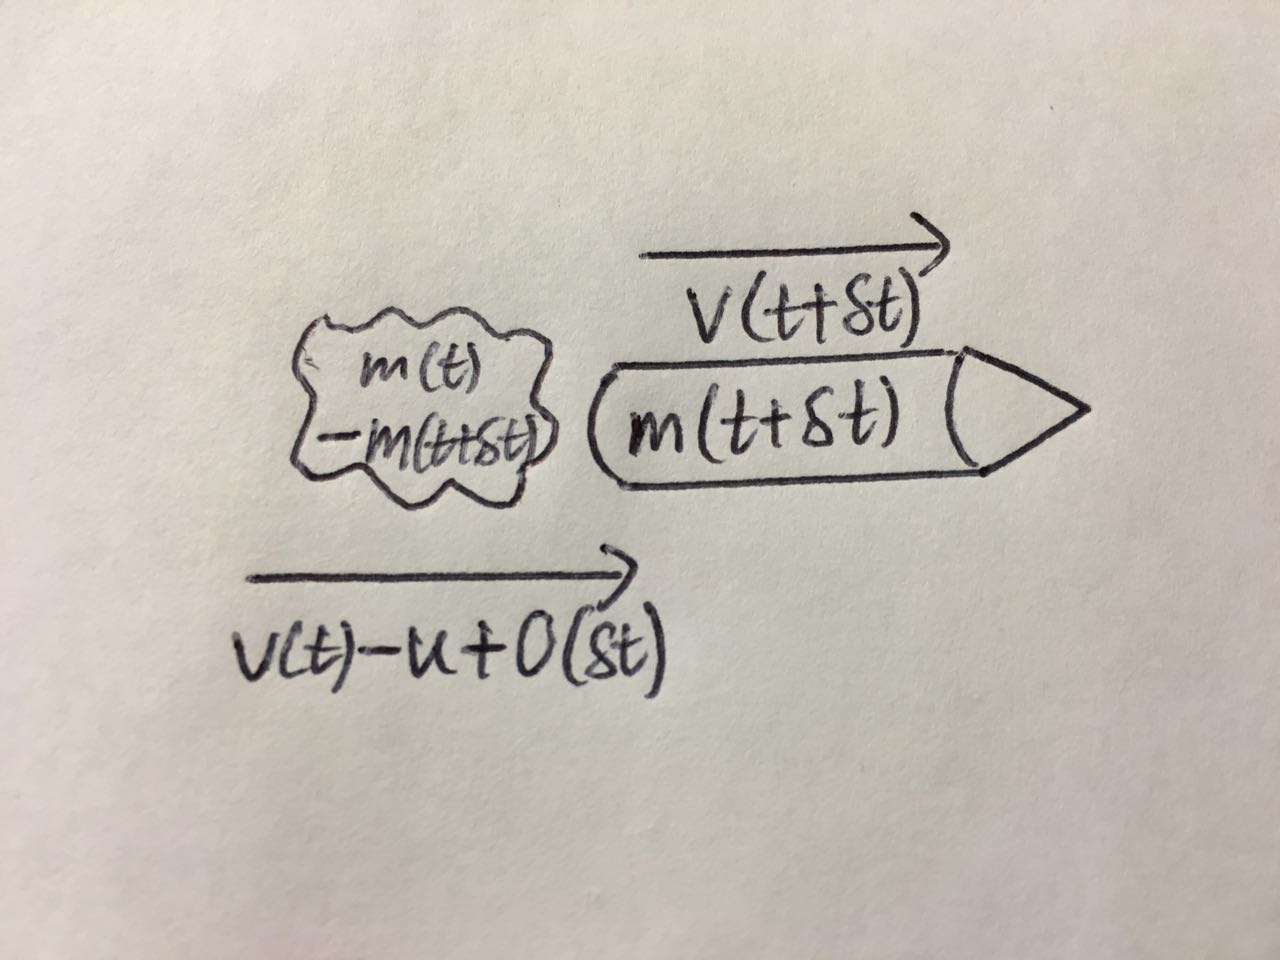 v(t+δt)
m(t)
-m(t+δt)
m(t+δt)
v(t)-u+O(δt)